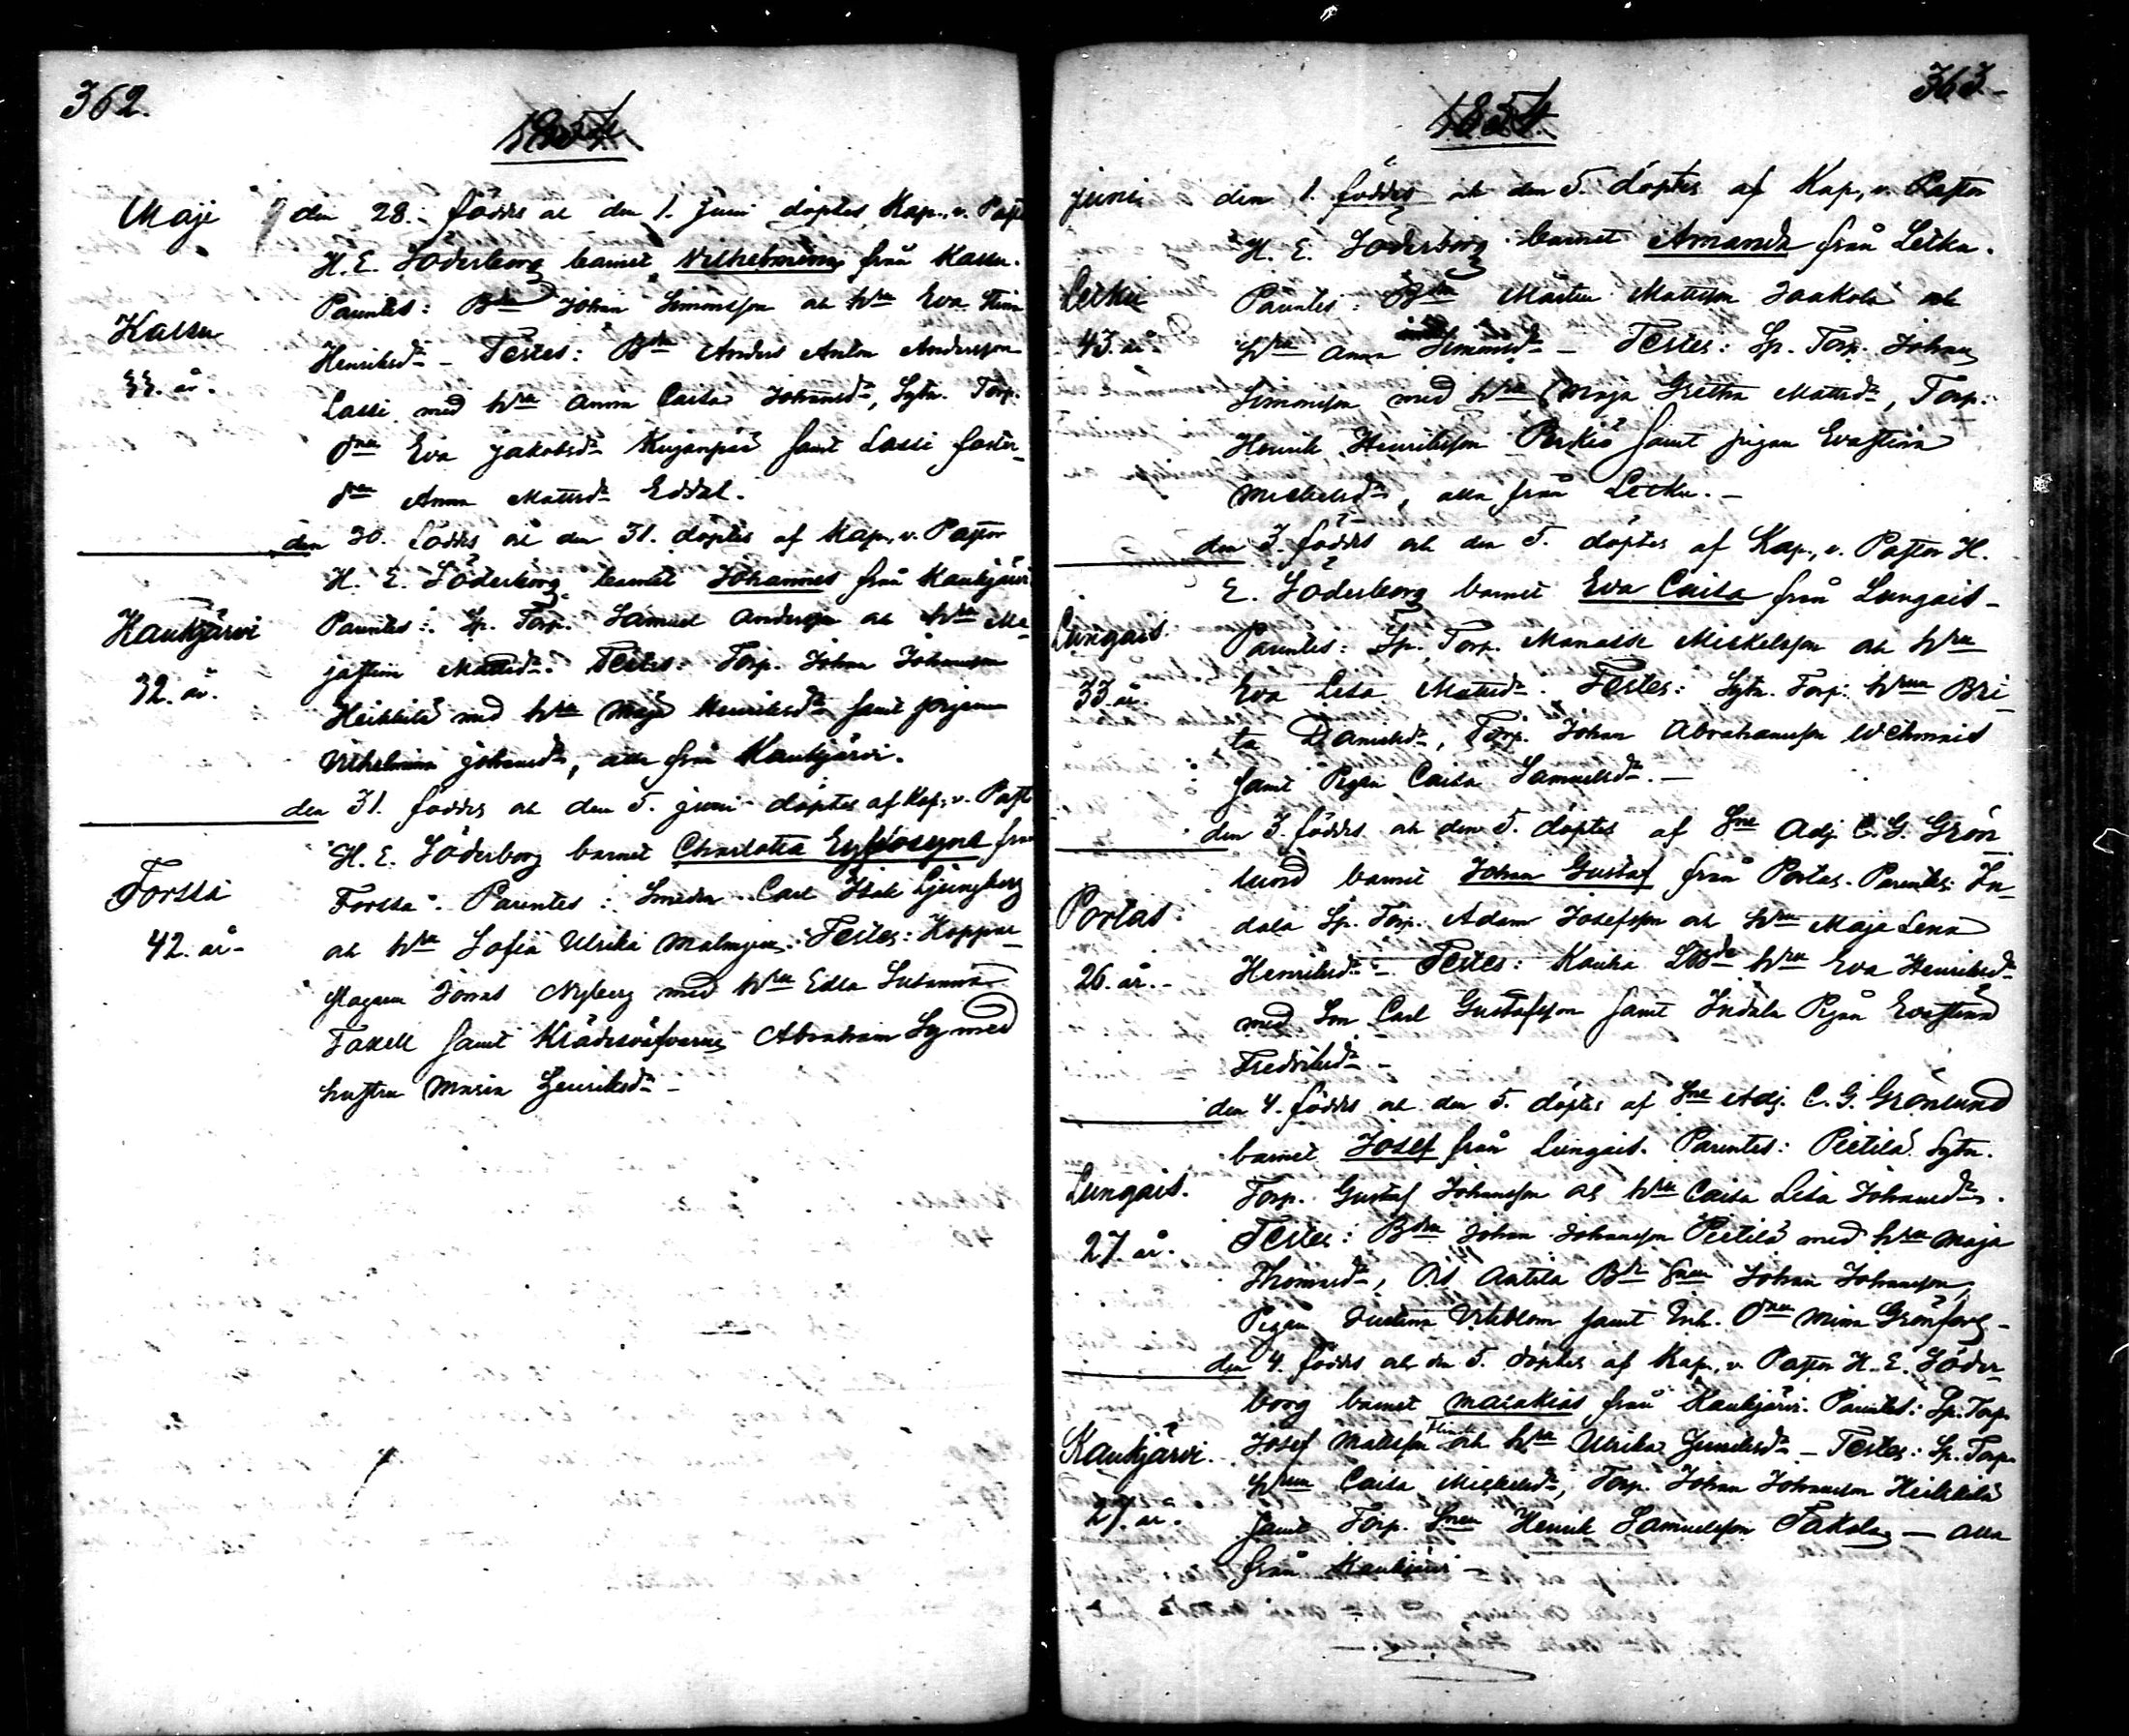 362.
1854.
Maji den 28. föddes ock den 1. Juni döptes Kap., v. Past
H. E. Söderborg barnet Vilhelmina från Kassu.
Kassu
33. år.
Parentes: Bdn Johan Simonsson ock hru Eva Stina
Henriksdr – Testes: Bdn Anders Anton Andersson
Lassi med hru Anna Caisa Johansdr, Sytn. Torp.
dren Eva Jakobsdr Kujanpää samt Lassi foster-
dren Anna Mattsdr Eddal.
den 30. föddes ock den 31. döptes af Kap., v. Pastor
H. E. Söderborg barnet Johannes från Kaukjärvi
Haukjärvi
32. år.
Parentes: Sp. Torp. Samuel Andersson ock hru Ma-
jastina Mattsdr. Testes: Torp. Johan Johansson
Heikkilä med hru Maja Henriksdr samt pigan
Vilhelmina Johansdr, alla från Kaukjärvi.
den 31. föddes ock den 5. juni döptes af Kap., v. Past
H. E. Söderborg barnet Charlotta Eufrosyne från
Forssa
42. år.
Forssa. Parentes: Smeden Carl Isak Ljungberg
ock hru Sofia Ulrika Malmgren. Testes: Koppar-
slagaren Jonas Nyberg med hru Edla Susanna
Faxell samt Klädesväfvaren Abraham Sy med
hustru Maria Henriksdr –
363.
1854.
juni den 1. föddes ock den 5. döptes af Kap., v. Pastor
H. E. Söderborg barnet Amanda från Letku.
Letku
43. år.
Parentes: Bdn Mårten Mattsson Jaakola ock
hru Anna Simonsdr – Testes: Sp. Torp. Johan
Simonsson med hru Maja Gretha Mattsdr, Torp.
Henrik Henriksson Perkiö samt pigan Evastina
Michelsdr, alla från Letku. –
den 3. föddes ock den 5. döptes af Kap., v. Pastor H.
E. Söderborg barnet Eva Caisa från Lungais –
Lungais.
33 år.
Parentes: Sp. Torp. Manasse Mickelsson ock hru
Eva Lisa Mattsdr. Testes: Sytn. Torp. hrun Bri-
ta Danielsdr, Torp. Johan Abrahamsson Wehmais
samt Pigan Caisa Samuelsdr. –
den 3. föddes ock den 5. döptes af Sne Adj. C. G. Grön
lund barnet Johan Gustaf från Portas. Parentes: In-
Portas
26. år. –
dala Sp. Torp. Adam Josefsson ock hru Maja Lena
Henriksdr – Testes: Kauha hru Eva Henriksdr
med Son Carl Gustafsson samt Indala Pigan Evastina
Fredriksdr –
den 4. föddes ock den 5. döptes af Sne Adj. C. G. Grönlund
barnet Josef från Lungais. Parentes: Pietilä Sytn.
Lungais.
27. år.
Torp. Gustaf Johansson ock hru Caisa Lisa Johansdr.
Testes: Bdn Johan Johansson Pietilä med hru Maja
Thomasdr, Antila Bdn Snen Johan Johansson,
Pigan Justina Vikblom samt Inh. dren Mina Grönfors –
den 4. föddes ock den 5. döptes af Kap., v. Pastor H. E. Söder-
borg barnet Malakias från Kaukjärvi. Parentes: Sp. Torp.
Kaukjärvi.
27. år.
Josef Mattsson ock hru Ulrika Henriksdr – Testes: Sp. Torp.
hrun Caisa Michelsdr, Torp. Johan Johansson Heikkilä
samt Torp. Snen Henrik Samuelsson Takala – alla
från Kaukjärvi –